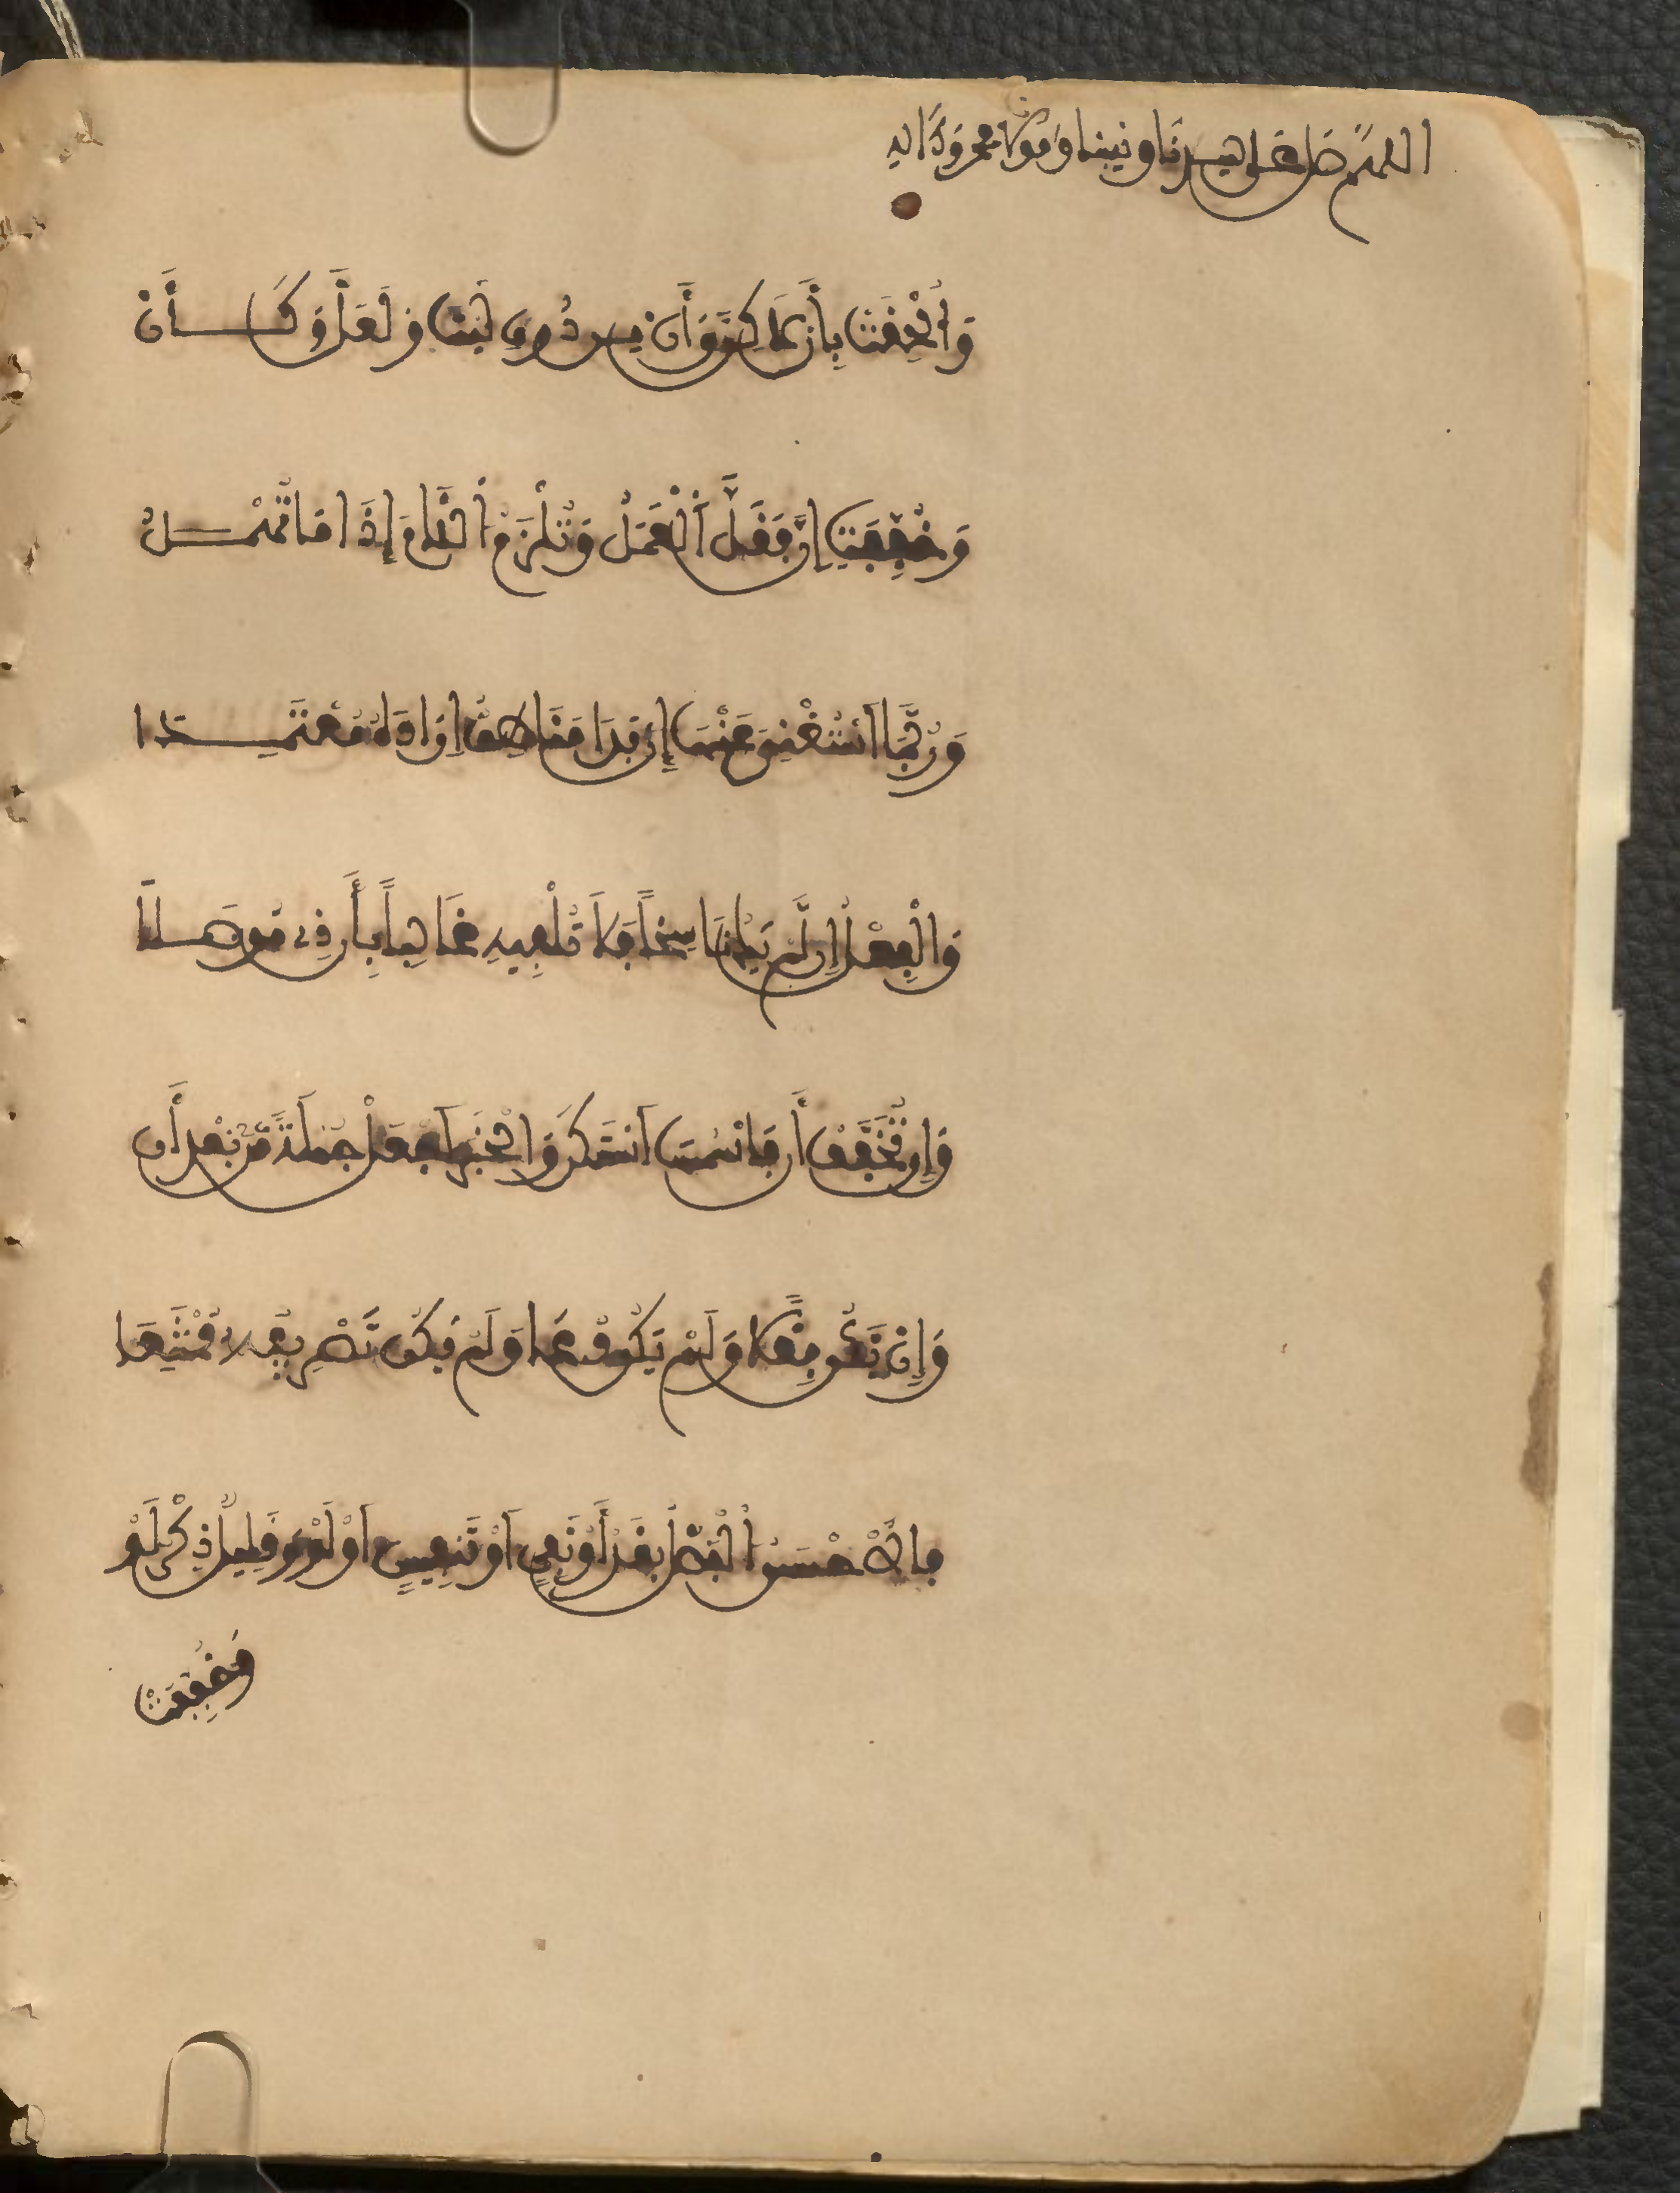 اللهم صل على سيدنا ونبينا ومولانا محمد وءاله
وَأُلْحِقَتْ بِإِنَّ لَكِنَّ وَأَنْ مِن دُونِ لَيْتَ وَلَعَلَّ وَكَأَنْ
وَخُفِّفَتْ إِنَّ فَقَلَّ ٱلْعَمَلُ وَتَلْزَمُ ٱللَّامُ إِذَا مَا تُهْمَلُ
وَرُبَّمَا ٱسْتُغْنِيَ عَنْهَا إِن بَدَا مَا نَاطِقٌ أَرَادَهُ مُعْتَمِدَا
وَالْفِعْلُ إِن لَّمْ يَكُ نَاسِخاً فَلَا تُلْفِيهِ غَالِباً بِإِن ذِي مُوصَلَا
وَإِن تُخَفَّفْ أَنَّ فَاسْمُهَا ٱسْتَكَنْ وَالْخَبَرَ ٱجْعَلْ جُمْلَةً مِّن بَعْدِ أَنْ
وَإِن يَكُن فِعْلاً وَلَمْ يَكُن دُعَا وَلَمْ يَكُن تَصْرِيفُهُ مُمْتَنِعَا
فَالْأَحْسَنُ ٱلْفَصْلُ بِقَدْ أَوْ نَفْيٍ ٱوْ تَنفِيسٍ ٱوْ لَوْ وَقَلِيلٌ ذِكْرُ لَوْ
وَخُفِّفَتْ